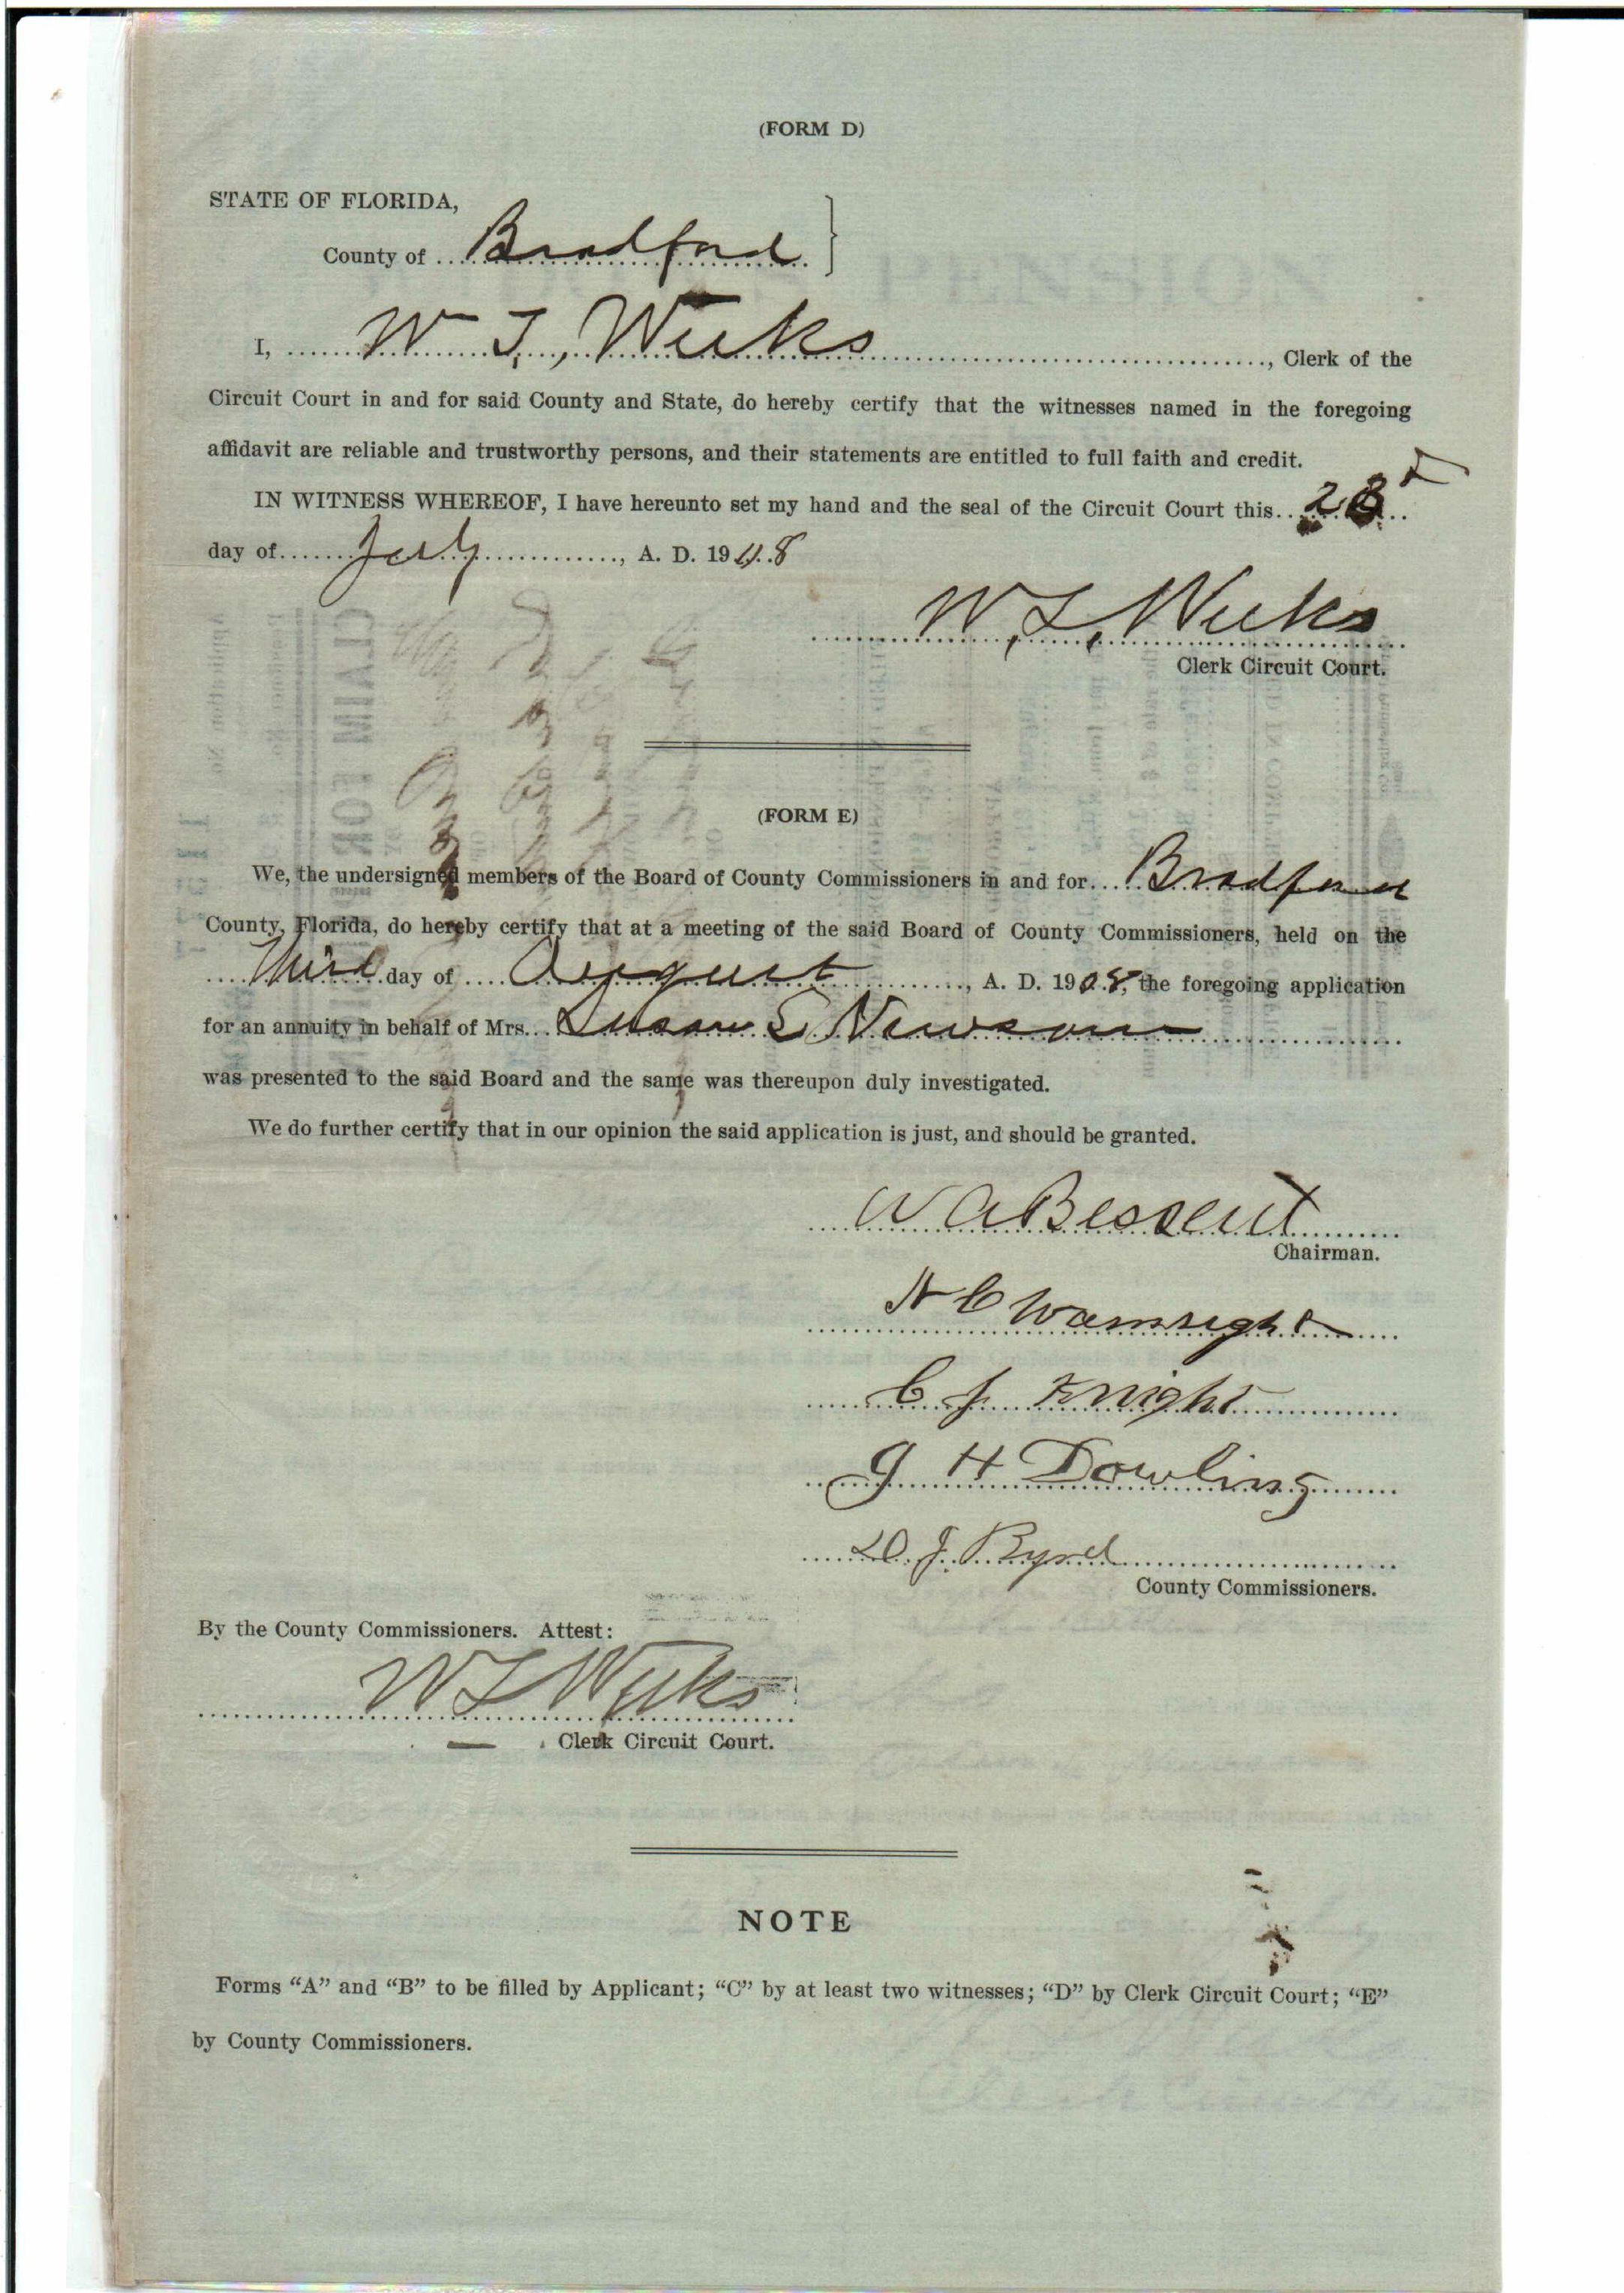 (FORM D)
STATE OF FLORIDA,
County of Bradford }
I, W T, Weeks, Clerk of the
Circuit Court in and for said County and State, do hereby certify that the witnesses named in the foregoing
affidavit are reliable and trustworthy persons, and their statements are entitled to full faith and credit.
IN WITNESS WHEREOF, I have hereunto set my hand and the seal of the Circuit Court this
day of July, A. D. 190.8
W. T, Weeks
Clerk Circuit Court.
(FORM E)
We, the undersigned members of the Board of County Commissioners in and for Bradford
County, Florida, do hereby certify that at a meeting of the said Board of County Commissioners, held on the
Third day of August, A. D. 1908, the foregoing application
for an annuity in behalf of Mrs. Susan S Newsom
was presented to the said Board and the same was thereupon duly investigated.
We do further certify that in our opinion the said application is just, and should be granted.
W A Bessent
Chairman.
N C Wainright
C J Knight
J H Dowling
D. J. Byrd
County Commissioners.
By the County Commissioners. Attest:
W T Weeks
Clerk Circuit Court.
NOTE
Forms “A” and “B” to be filled by Applicant; “C” by at least two witnesses; “D” by Clerk Circuit Court; “E”
by County Commissioners.